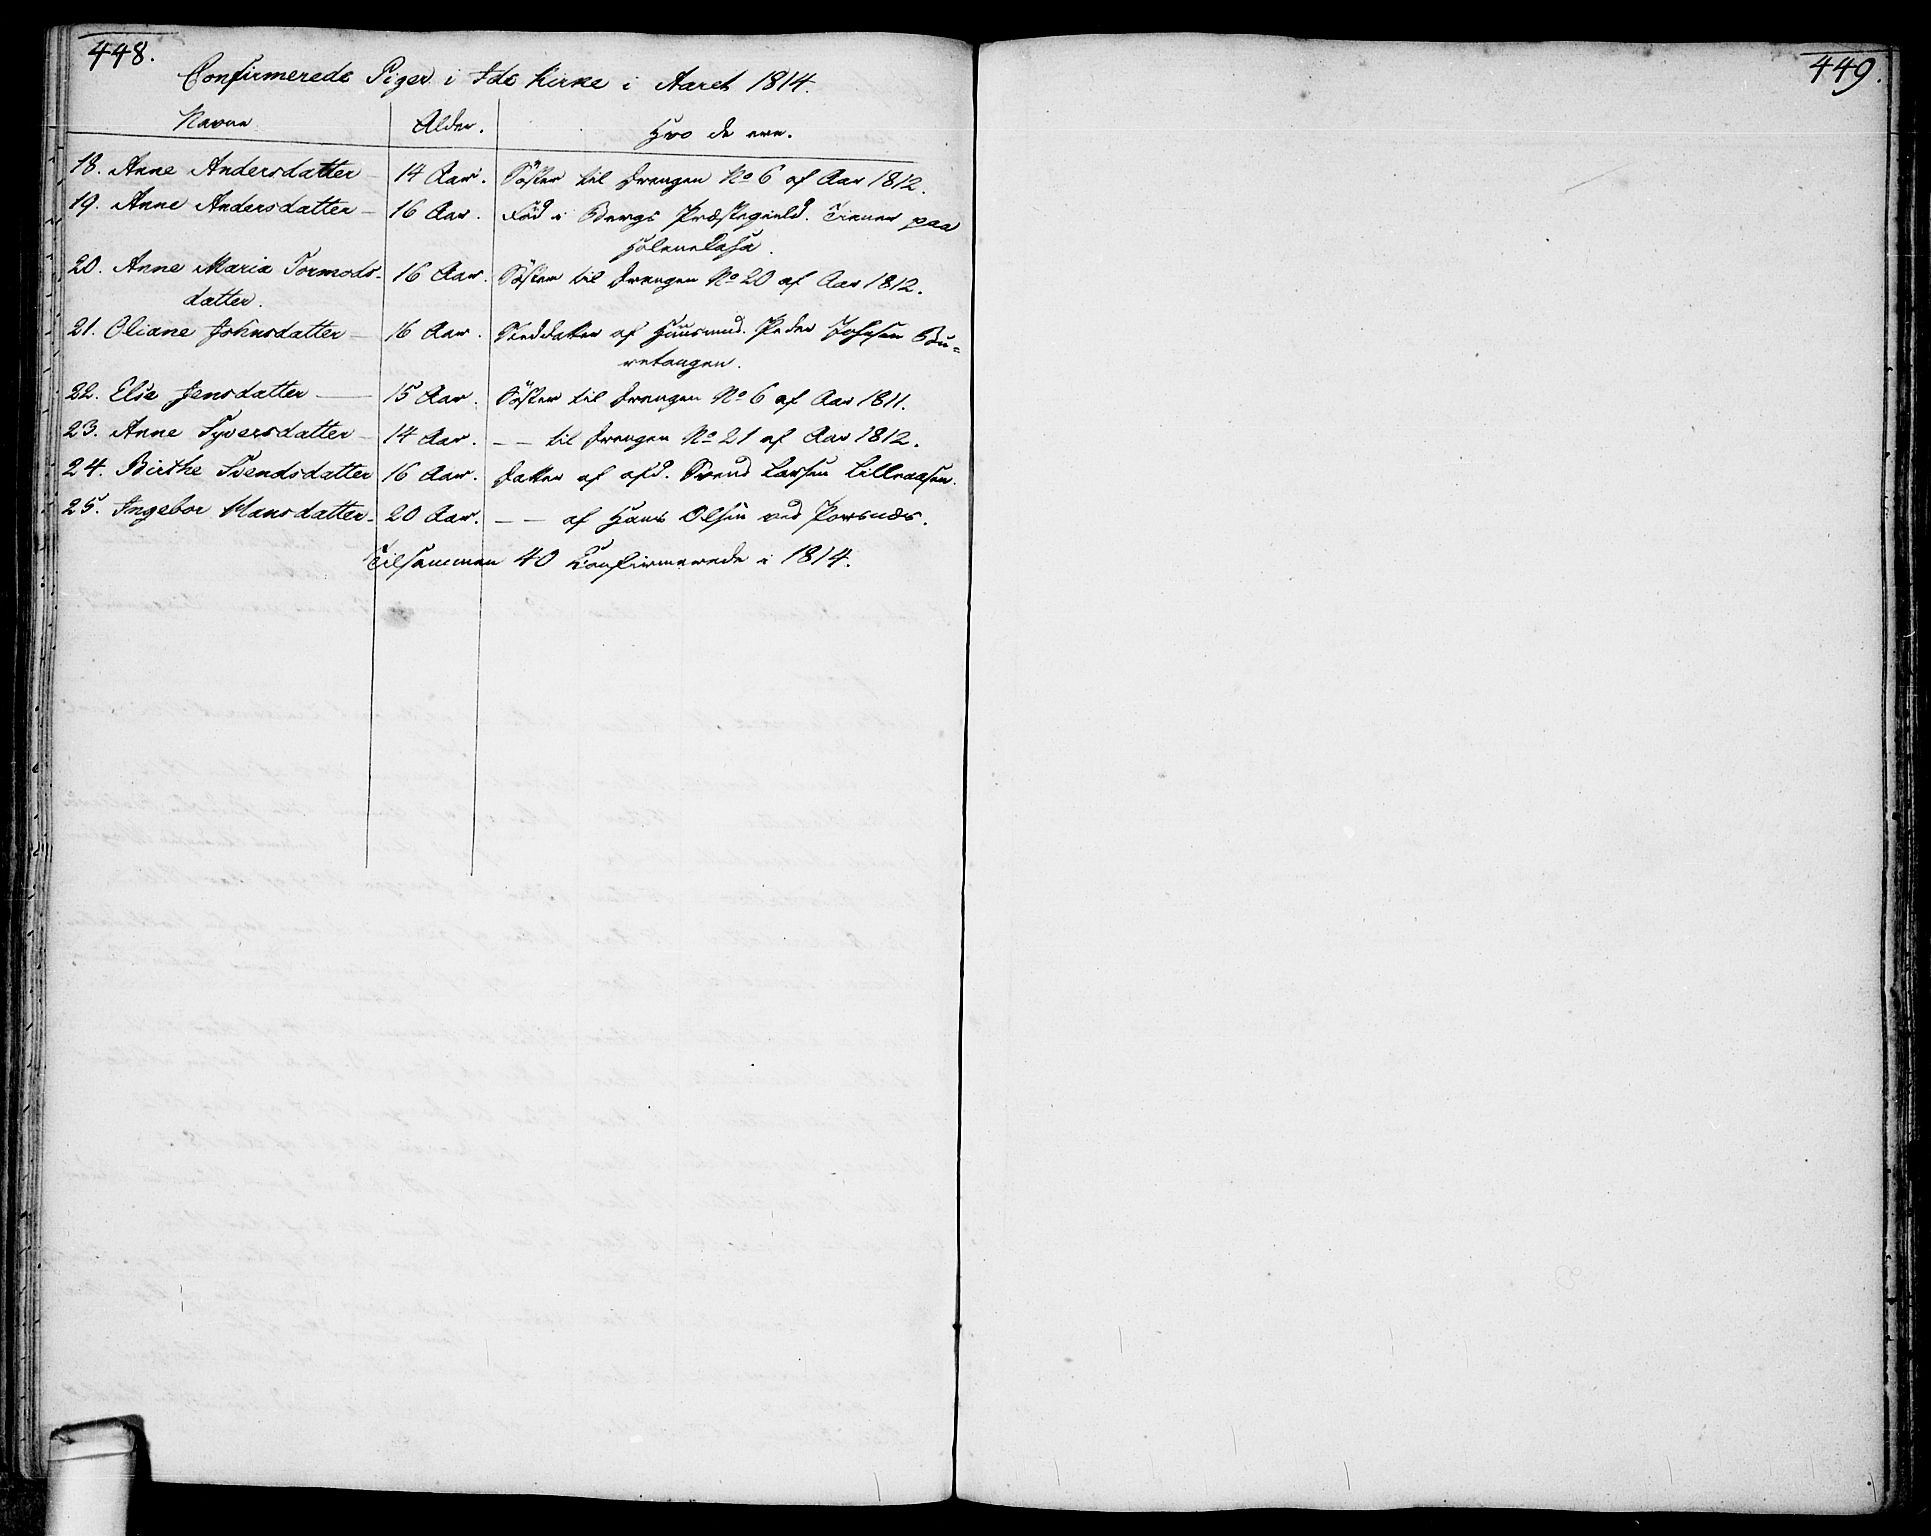 448.
Confirmerede Piger i Ide Kirke i Aaret 1814.
Navne Alder. Hvo de ere.
18. Anne Andersdatter — 14 Aar. Söster til Drengen No 6 af Aar 1812.
19. Anne Andersdatter — 16 Aar. Föd i Bergs Præstegield. Tiener paa
20. Anne Maria Tormods- 16 Aar. Söster til Drengen No 20 af Aar 1812.
datter.
21. Oliane Johnsdatter — 16 Aar. Steddatter af Huusmd. Peder Johnsen Bu=
retangen.
22. Elie Jensdatter — 15 Aar. Söster til Drengen No 6 af Aar 1811.
23. Anne Syversdatter — 14 Aar. — — til Drengen No 21 af Aar 1812.
24. Birthe Svendsdatter 16 Aar. Datter af afd. Svend Larsen Lilleaasen.
25. Ingebor Hansdatter — 20 Aar. — — af Hans Olsen ved Porsnæs.
Tilsammen 40 Confirmerede i 1814.
449.